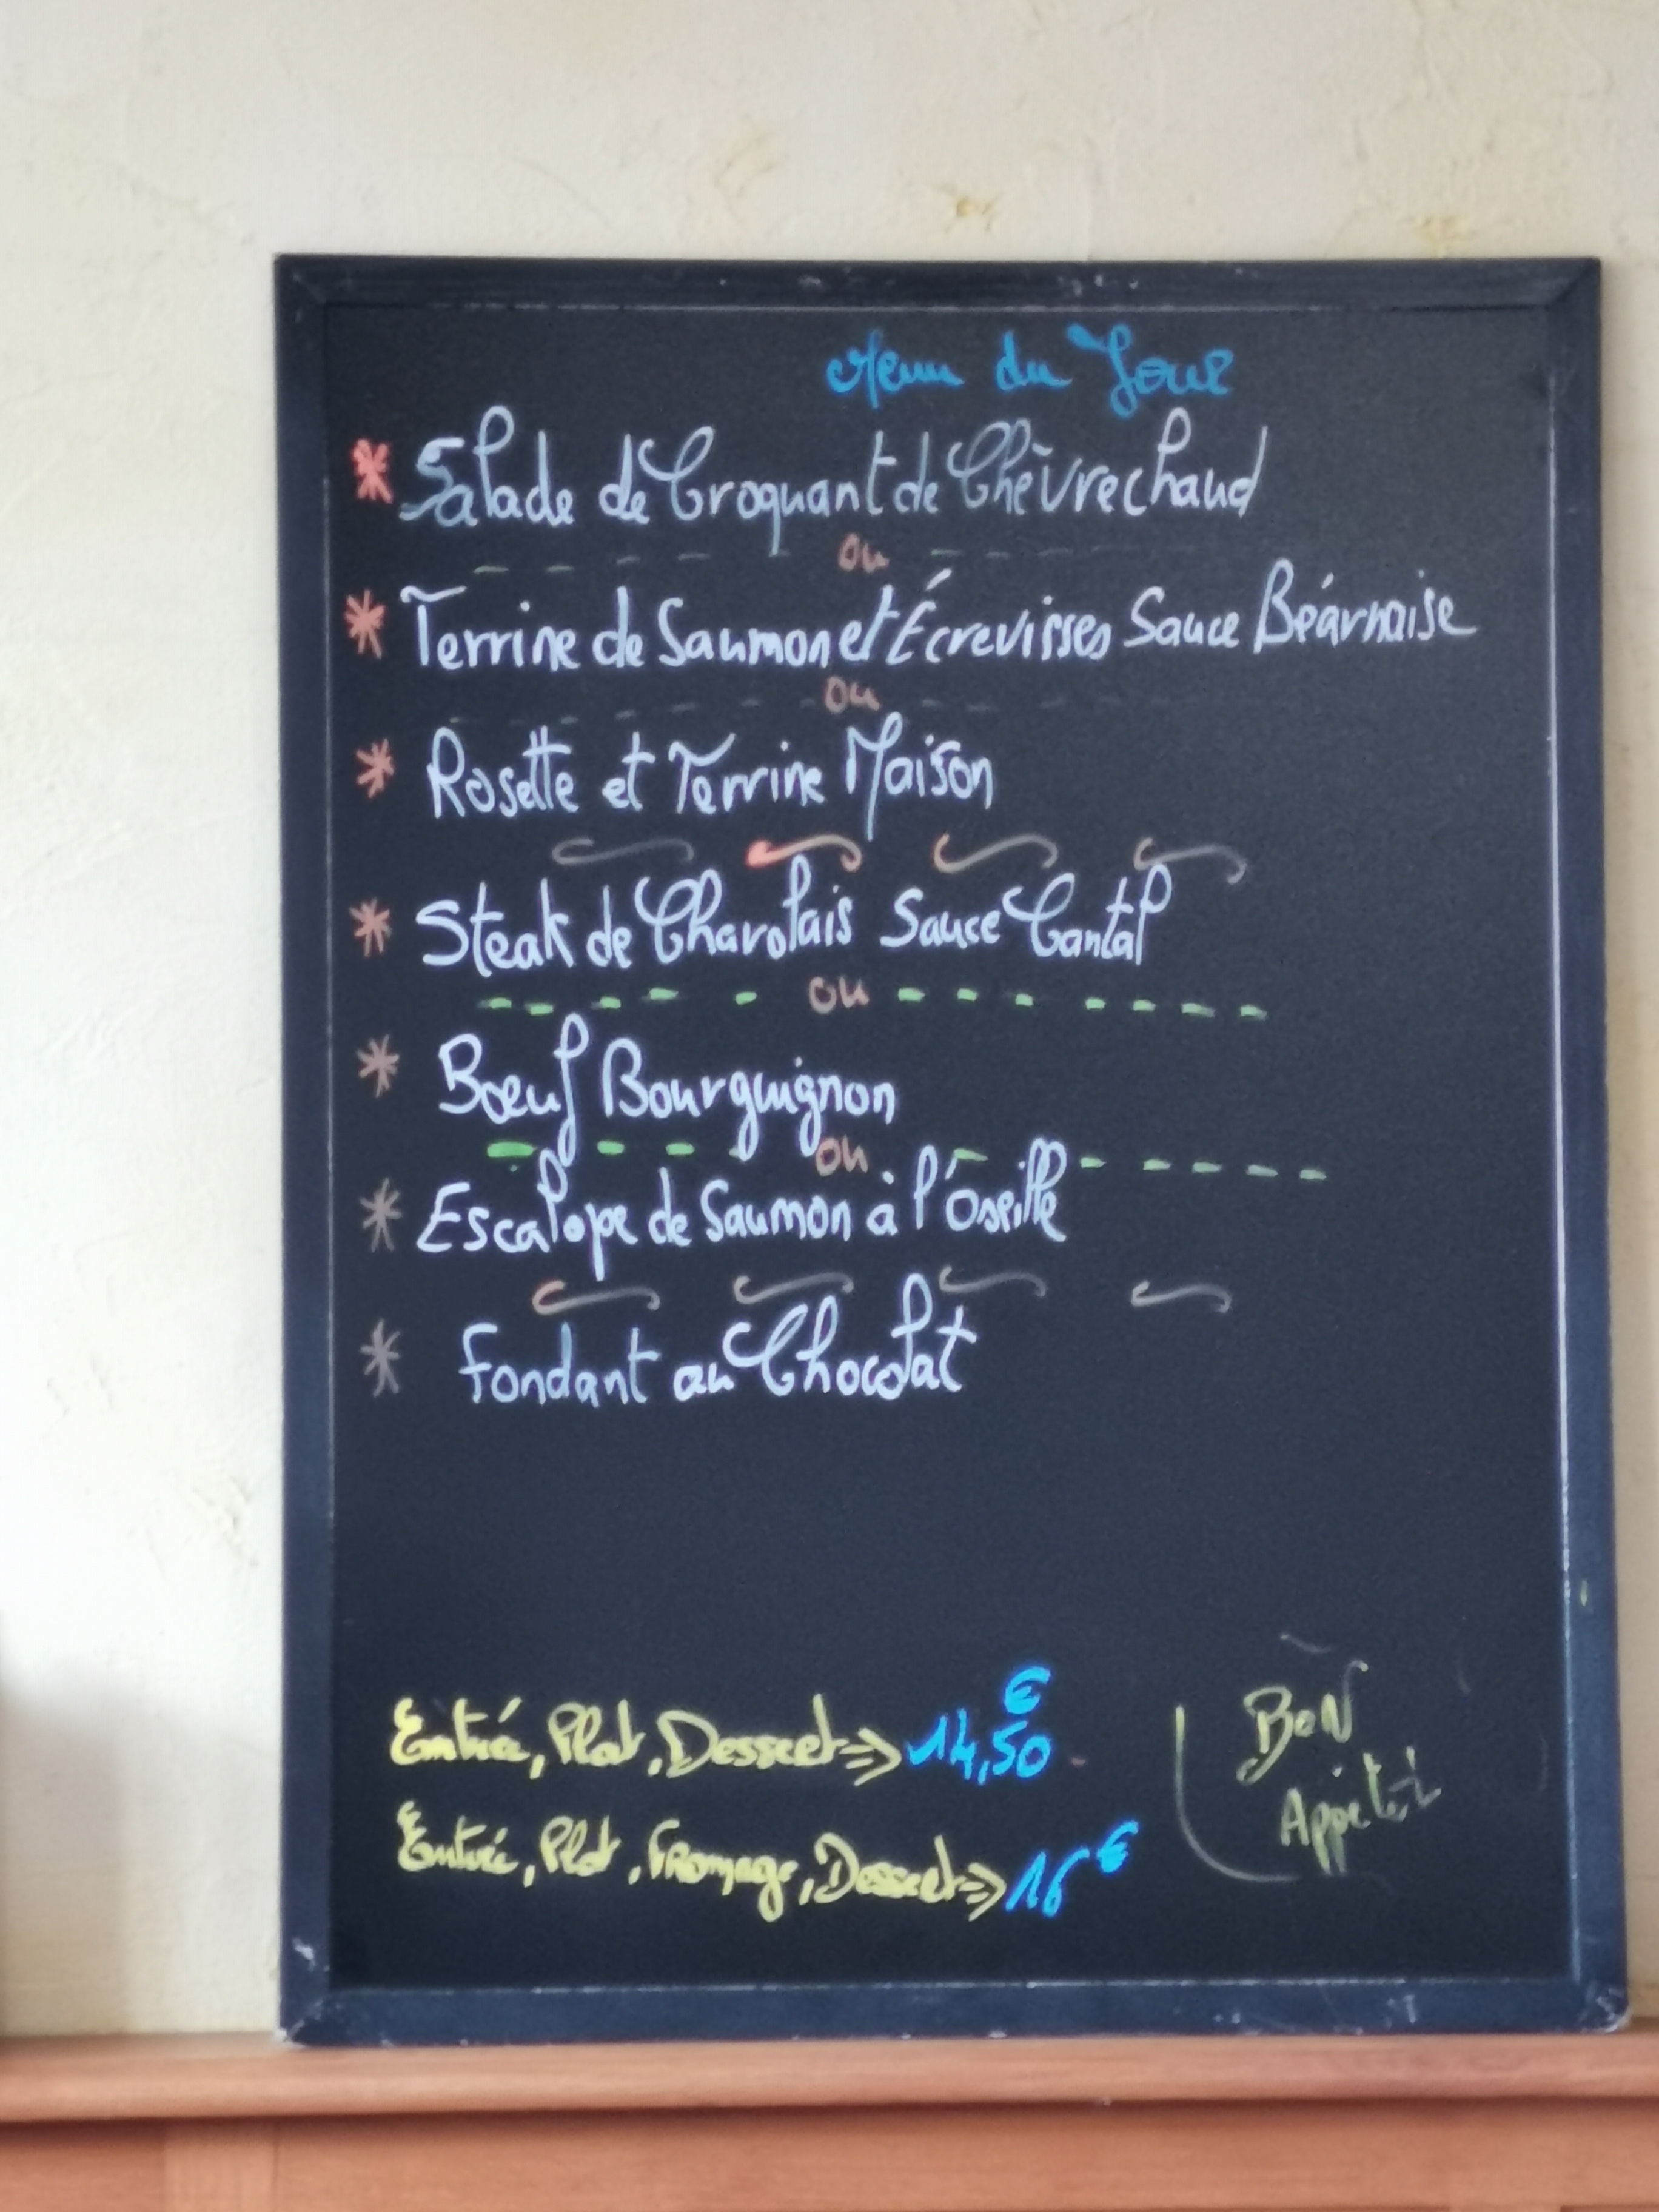 Menu du Jour
* Salade de Croquant de Chèvre chaud
ou
* Terrine de Saumon et Écrevisses Sauce Béarnaise
ou
* Rosette et Terrine Maison
* Steak de Charolais Sauce Cantal
ou
* Bœuf Bourguignon
ou
* Escalope de Saumon à l'Oseille
* Fondant au Chocolat
Entrée, Plat, Dessert => 14,50 €
Entrée, Plat, Fromage, Dessert => 16 €
BON
Appétit